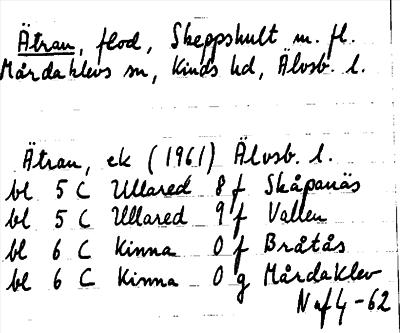 Ätran, flod, Skeppshult m. fl.
Mårdaklevs sn, Kinds hd, Älvsb. l.
Ätran, ek (1961) Älvsb. l.
bl 5 C Ullared 8 f Skåpanäs
bl 5 C Ullared 9 f Vallen
bl 6 C Kinna 0 f Bråtås
bl 6 C Kinna 0 g Mårdaklev
N af 4-62